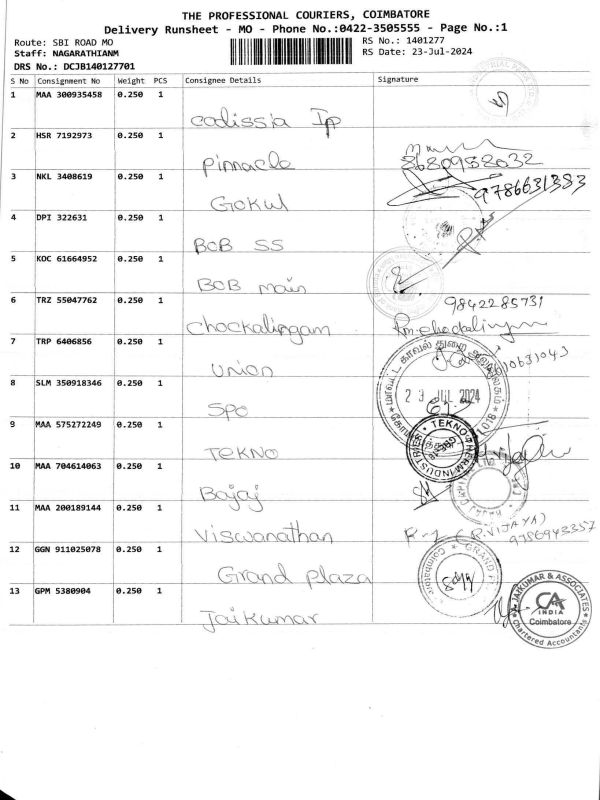 THE PROFESSIONAL COURIERS, COIMBATORE
Delivery Runsheet - MO - Phone No.:0422-3505555 - Page No.:1
Route: SBI ROAD MO
RS No.: 1401277
Staff: NAGARATHIANM
RS Date: 23-Jul-2024
DRS No.: DCJB140127701
S No Consignment No Weight PCS Consignee Details Signature
1 MAA 300935458 0.250 1
codissia
2 HSR 7192973 0.250 1
Pinnacle 8680952032
3 NKL 3408619 0.250 1
Gokul 9786631383
4 DPI 322631 0.250 1
BOB SS
5 KOC 61664952 0.250 1
BOB main
6 TRZ 55047762 0.250 1
9842285731
Chockalingam
7 TRP 6406856 0.250 1
Union
8 SLM 350918346 0.250 1
23 JUL 2024
Spo
9 MAA 575272249 0.250 1
TEKNO THERM INDUSTRIES
TEKNO
10 MAA 704614063 0.250 1
Bajaj
11 MAA 200189144 0.250 1
Viswanathan (R.VIJAYA)
9786943357
12 GGN 911025078 0.250 1
Grand plaza
Coimbatore
13 GPM 5380904 0.250 1
Jaikumar
JAIKUMAR & ASSOCIATES
CA
INDIA
Coimbatore
Chartered Accountants